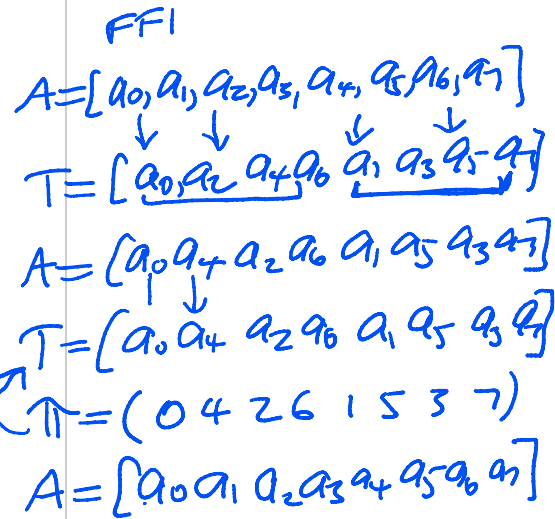 FFT
A=[a0,a1,a2,a3,a4,a5,a6,a7]
T=[a0,a2 a4 a6 a1 a3 a5 a7]
A=[a0 a4 a2 a6 a1 a5 a3 a7]
T=[a0 a4 a2 a6 a1 a5 a3 a7]
π=(0 4 2 6 1 5 3 7)
A=[a0 a1 a2 a3 a4 a5 a6 a7]